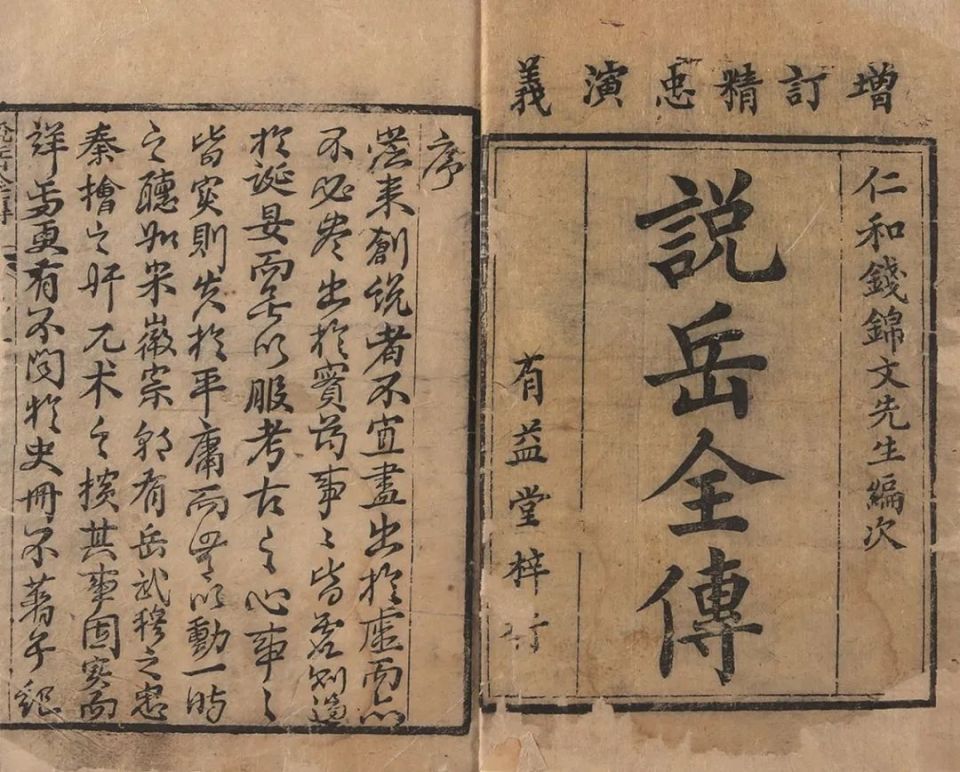 增訂精忠演義
仁和錢錦文先生編次
說岳全傳
有益堂梓行
序
從来創說者不宜盡出於虛而亦
不必尽出於實苟事〻皆虛則過
於誕妄而無以服考古之心事〻
皆实則失於平庸而無以動一時
之聽如宋徽宗朝有岳武穆之忠
秦檜之奸兀术之横其事固实而
詳焉更有不聞於史冊不著於紀